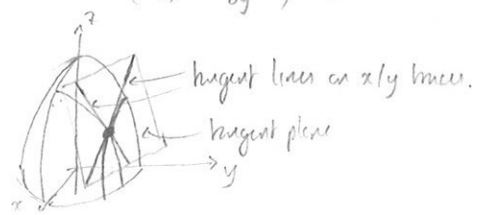 z
tangent lines on x/y traces.
tangent plane
y
x